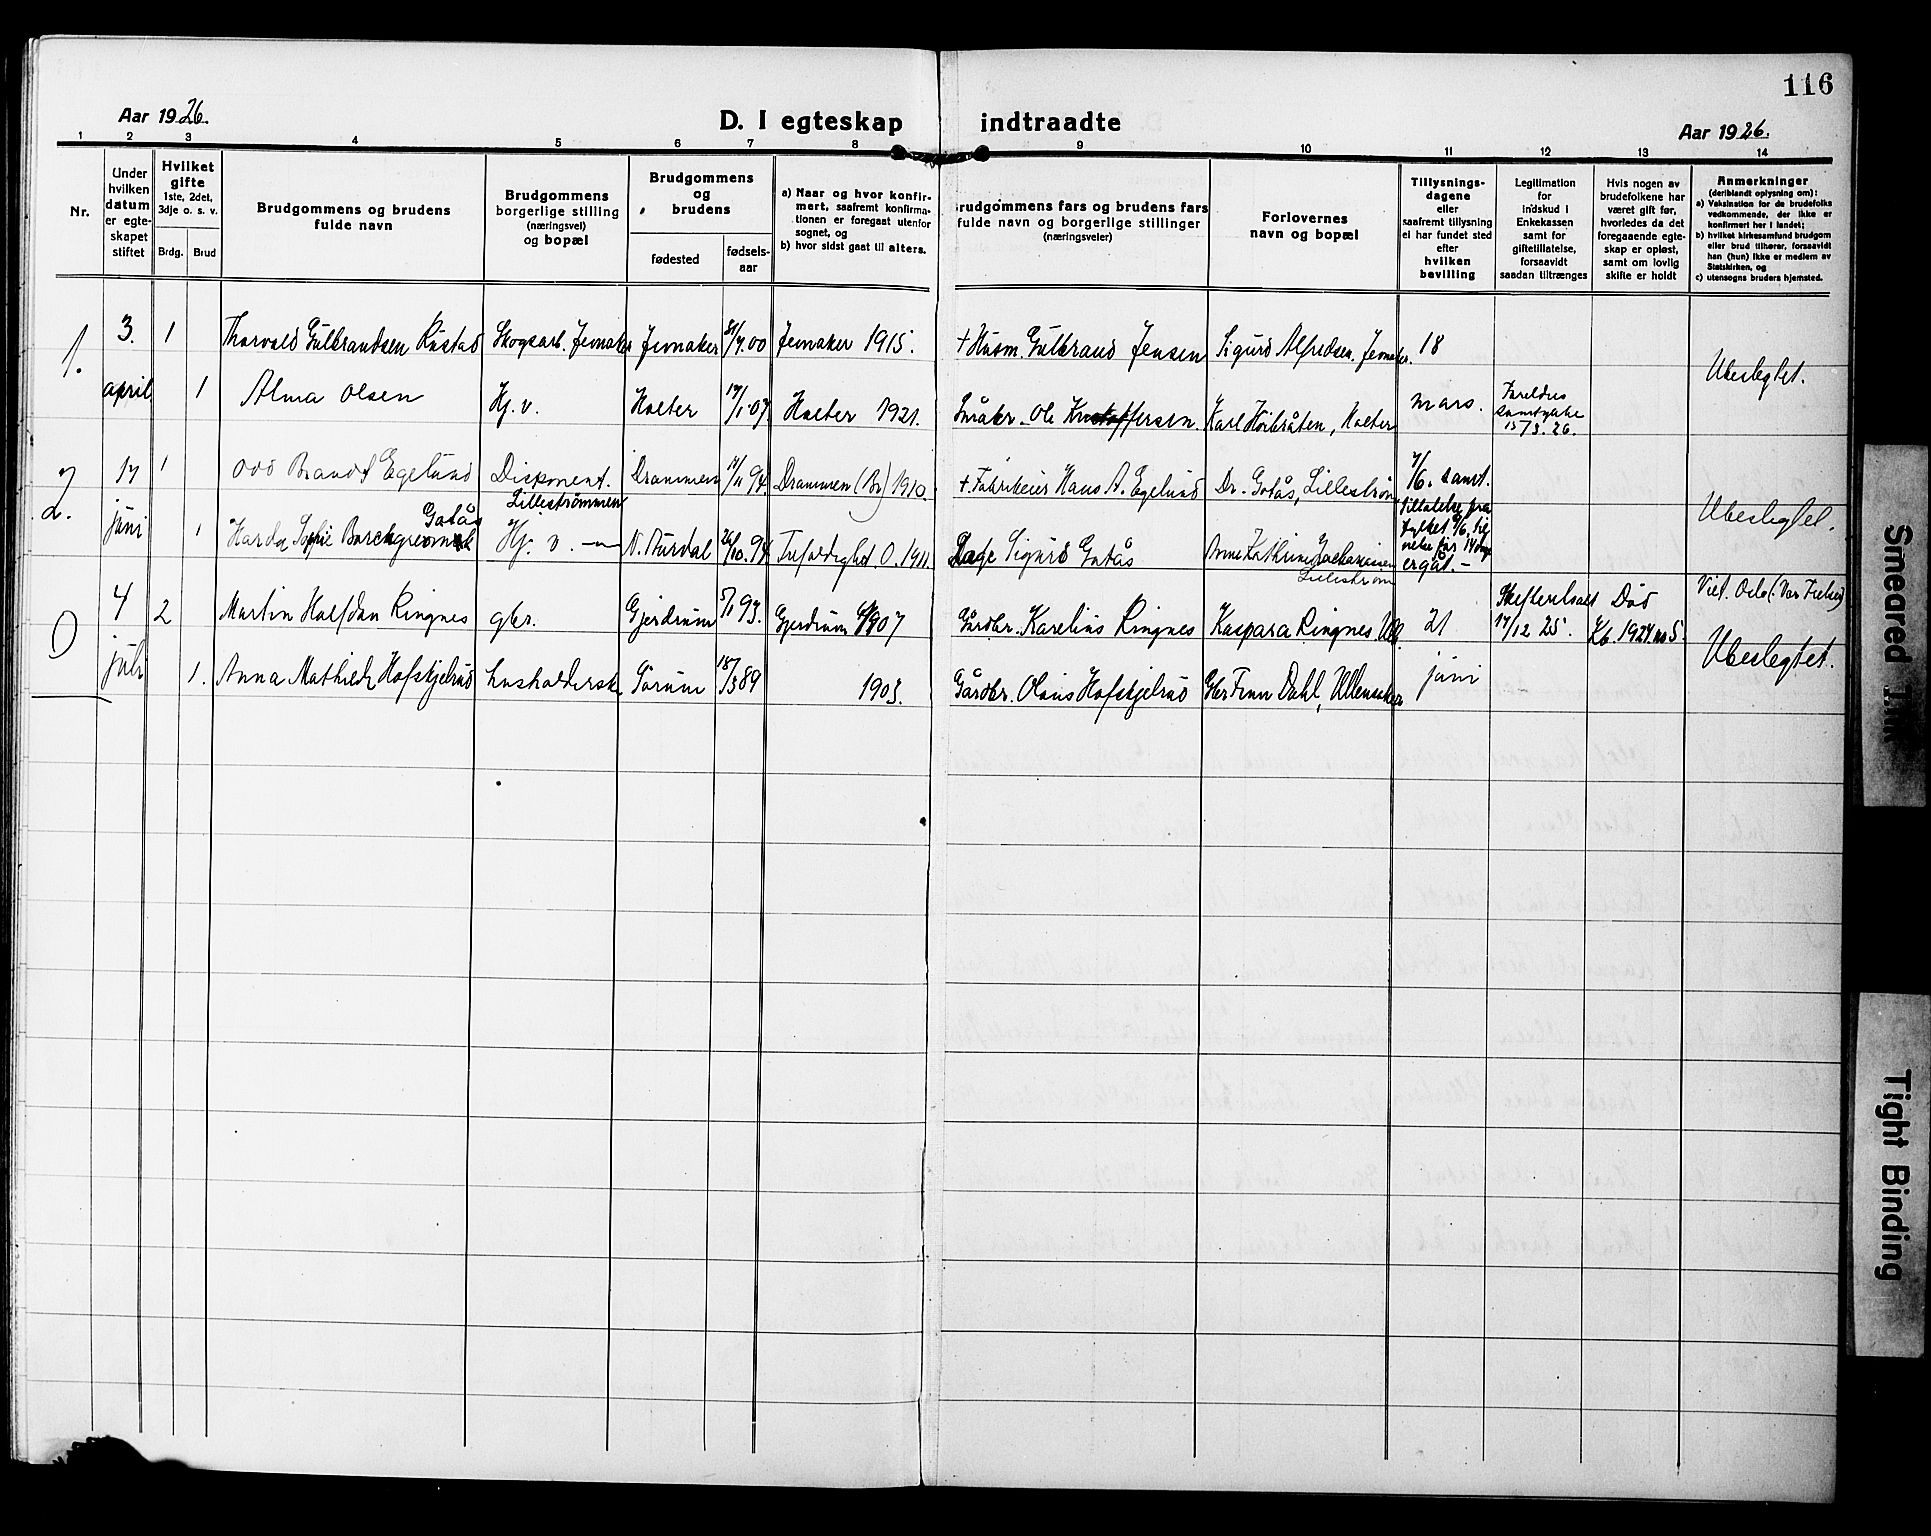 116
Aar 1926.
D. I egteskap indtraadte
Aar 1926.
1 2 3 4 5 6 7 8 9 10 11 12 13 14
Nr.
Under hvilken datum er egteskapet stiftet
Hvilket gifte 1ste, 2det, 3dje o. s. v.
Brdg. Brud
Brudgommens og brudens fulde navn
Brudgommens borgerlige stilling (næringsvei) og bopæl
Brudgommens og brudens
fødested
fødsels-aar
a) Naar og hvor konfirmert, saafremt konfirmationen er foregaat utenfor sognet, og
b) hvor sidst gaat til alters.
Brudgommens fars og brudens fars fulde navn og borgerlige stillinger (næringsveier)
Forlovernes navn og bopæl
Tillysningsdagene eller saafremt tillysning ei har fundet sted efter hvilken bevilling
Legitimation for indskud i Enkekassen samt for giftetillatelse, forsaavidt saadan tiltrænges
Hvis nogen av brudefolkene har været gift før, hvorledes da det foregaaende egteskap er opløst, samt om lovlig skifte er holdt
Anmerkninger (deriblandt oplysning om):
a) Vaksination for de brudefolks vedkommende, der ikke er konfirmert her i landet;
b) hvilket kirkesamfund brudgom eller brud tilhører, forsaavidt han (hun) ikke er medlem av Statskirken, og
c) utensogns bruders hjemsted.
1. 3. 1 Thorvald Gulbrandsen Rustad Skogsarb. Jevnaker Jevnaker 31/7.00 Jevnaker 1915. + Husm. Gulbrand Jensen Sigurd Alfredsen, Jevnaker. 18
Ubeslegtet.
april 1 Alma Olsen Hj. v. Holter 17/1.07 Holter 1921. Småbr. Ole Kristoffersen. Karl Höibråten, Holter mars. Foreldres samtykke 15/3.26.
2. 17 1 Odd Brandt Egelund Disponent. Lillestrømmen Drammen 17/11 94. Drammen (Br) 1910. + Fabrikeier Hans A. Egelund Dr. Gotås, Lillestrøm 7/6. samt. tillatelse fra fylket
Ubeslegtet.
juni 1 Sofie Borchgrevink Gotås Hj. v. — N. Aurdal Trefoldighed O. 1911. Læge Sigurd Gotås Anne Kathrine Zachariassen Lillestrøm 14 dage
4 2 Martin Halfdan Ringnes gbr. Gjerdrum 5/1 93. Gjerdrum 1907 Gårdbr. Karelius Ringnes Kaspara Ringnes, Ull. 21 17/12 25. Død Kb. 1924 no 5. Viet. Oslo (Vor Frelser)
Ubeslegtet.
juli 1. Anna Mathilde Hofskjelrud husholderske Sørum 18/3 89 1903. Gårdbr. Olaus Hofskjelrud Gbr Finn Dahl, Ullensaker juni
Smeared Ink
Tight Binding